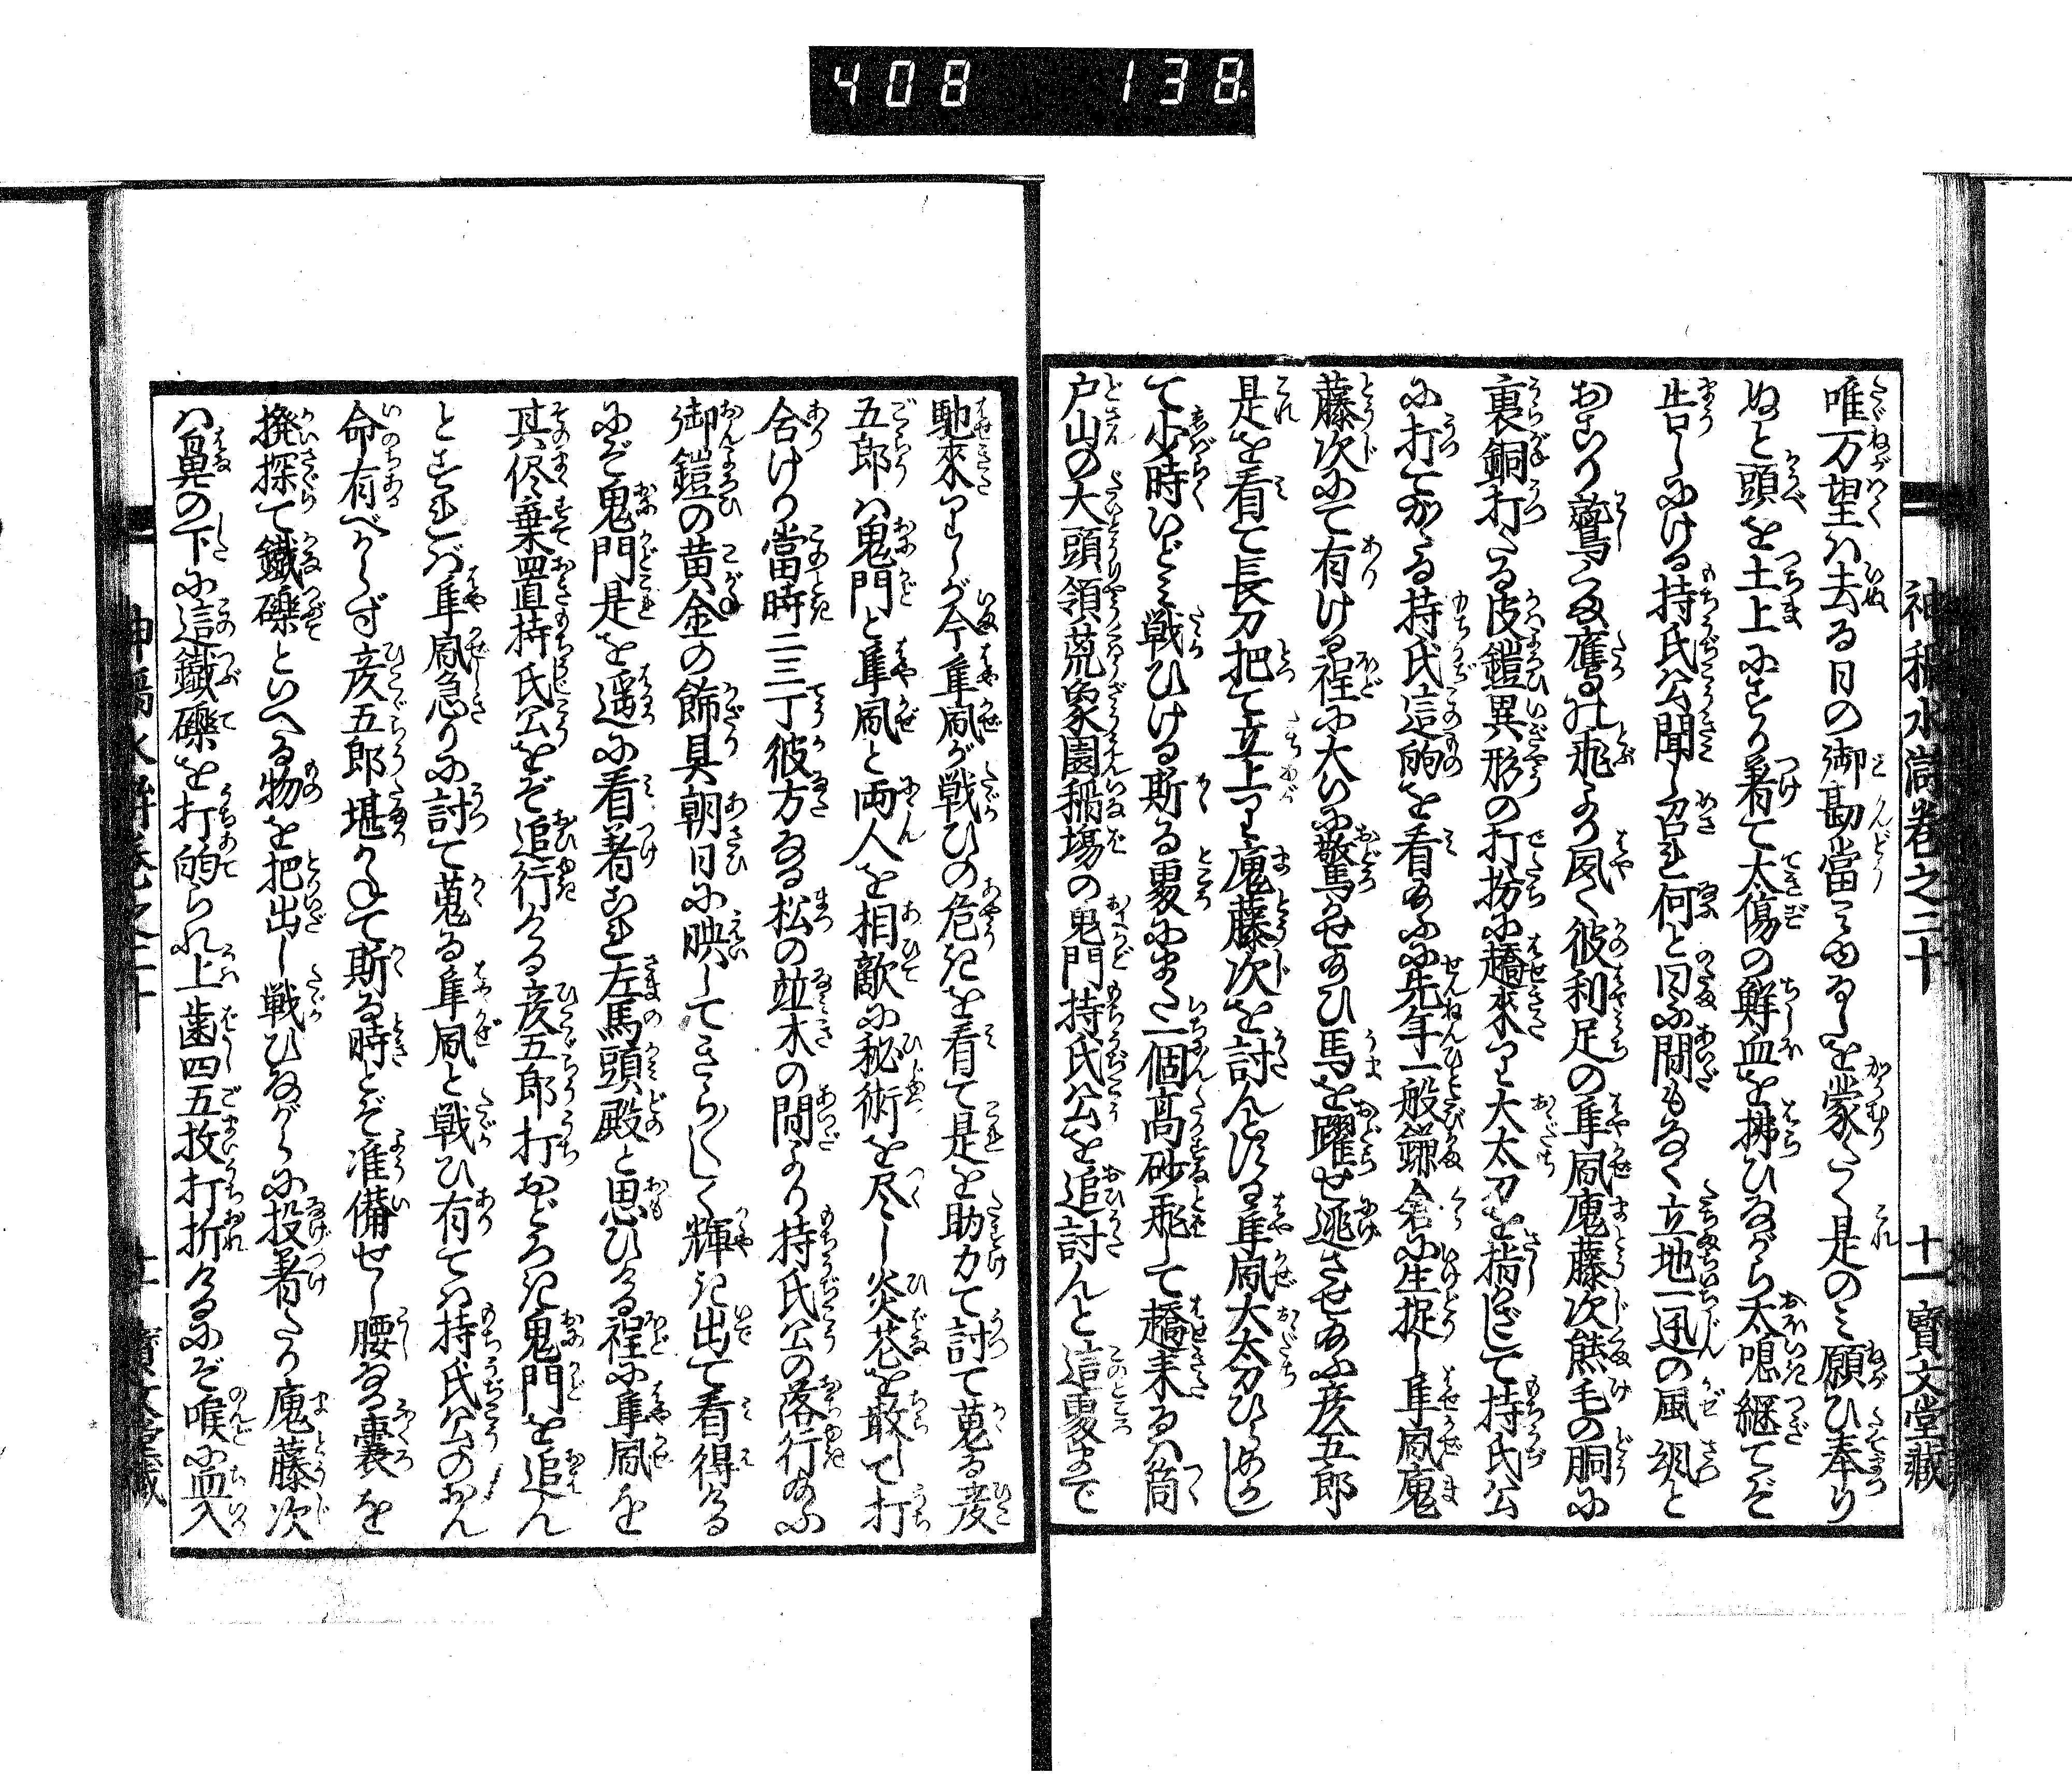 408 138
神稲水滸巻之二十 十一 寶文堂藏
唯万望ハ去る日の御勘當をゆるしを蒙たく是のミ願ひ奉り
ぬと頭を土上にすり着て太傷の鮮血を拂ひながら太息継てぞ
告しにける持氏公聞し召れ何と曰ふ間もなく立地一迅の風颯と
おこり鷲また鷹の飛より夙く彼利足の隼風魔藤次熊毛の胴に
裏銅打たる皮鎧異形の打扮に趨來り大太刀を指かざして持氏公
に打てかゝる持氏這的を看給ふに先年一般鎌倉に生捉し隼風魔
藤次にて有ける程に大いに驚かせ給ひ馬を躍せ逃させ給ふ彦五郎
是を看て長刀把て立上り魔藤次を討んとする隼風大太刀ひらめかし
て少時いどミ戦ひける斯る裏にまた一個高砂飛して趨来るハ筒
戸山の大頭領荒象園稲塲の鬼門持氏公を追討んと這裏まで
馳來りしが今隼風が戦ひの危きを看て是を助力て討て蒐る彦
五郎ハ鬼門と隼風と両人を相敵に秘術を尽し炎花を散して打
合けり當時二三丁彼方なる松の並木の間より持氏公の落行給ふ
御鎧の黄金の飾具朝日に映してきら〳〵しく輝き出て看得ける
にぞ鬼門是を遥に看着これ左馬頭殿と思ひける程に隼風を
其侭棄置持氏公をぞ追行ける彦五郎打おどろき鬼門を追ん
とすれバ隼風急りに討て蒐る隼風と戦ひ有てハ持氏公のおん
命有べからず彦五郎堪かねて斯る時とぞ准備せし腰なる嚢を
撥探て鐵礫といへる物を把出し戦ひながらに投着たり魔藤次
ハ鼻の下に這鐵礫を打的られ上歯四五枚打折けるにぞ喉に血入
神稲水滸巻之二十 十一 寶文堂藏